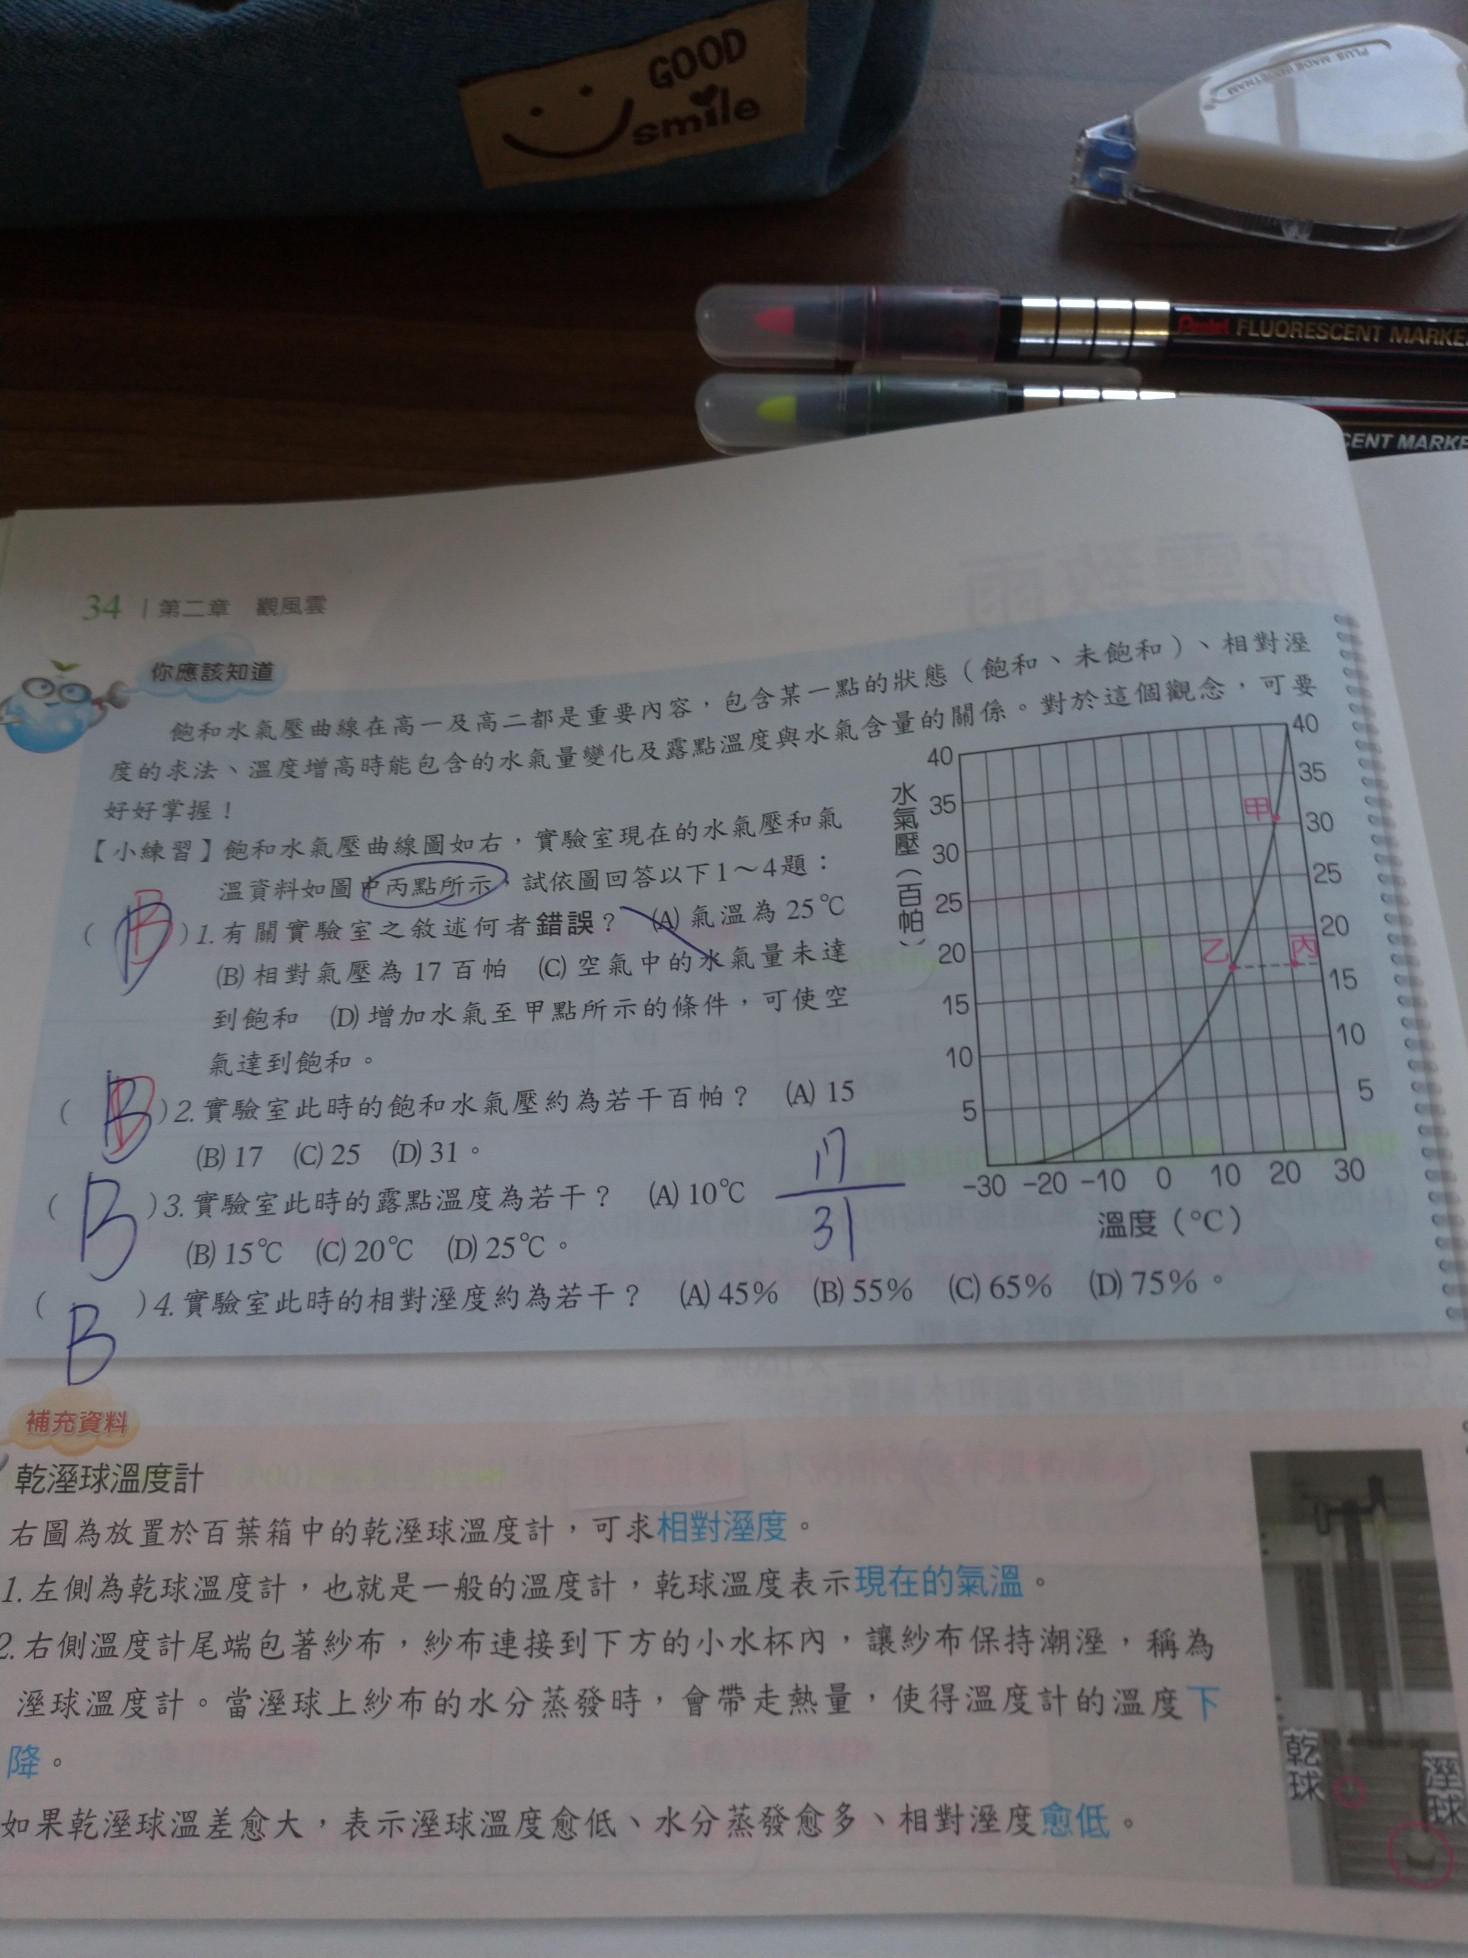 GOOD
smile
PLUS MADE IN VIETNAM
Pentel FLUORESCENT MARKE
CENT MARKE
34 | 第二章 觀風雲
你應該知道
飽和水氣壓曲線在高一及高二都是重要內容，包含某一點的狀態（飽和、未飽和）、相對溼
度的求法、溫度增高時能包含的水氣量變化及露點溫度與水氣含量的關係。對於這個觀念，可要
好好掌握！
【小練習】飽和水氣壓曲線圖如右，實驗室現在的水氣壓和氣
溫資料如圖中丙點所示，試依圖回答以下1～4題：
( B )1.有關實驗室之敘述何者錯誤？ (A)氣溫為25℃
(B)相對氣壓為17百帕 (C)空氣中的水氣量未達
到飽和 (D)增加水氣至甲點所示的條件，可使空
氣達到飽和。
( )2.實驗室此時的飽和水氣壓約為若干百帕？ (A)15
(B)17 (C)25 (D)31。
( B )3.實驗室此時的露點溫度為若干？ (A)10℃
(B)15℃ (C)20℃ (D)25℃。
( B )4.實驗室此時的相對溼度約為若干？ (A)45% (B)55% (C)65% (D)75%。
17
31
水氣壓（百帕）
40
35
30
25
20
15
10
5
40
35
30
25
20
15
10
5
甲
乙
丙
-30 -20 -10 0 10 20 30
溫度（℃）
補充資料
乾溼球溫度計
右圖為放置於百葉箱中的乾溼球溫度計，可求相對溼度。
1.左側為乾球溫度計，也就是一般的溫度計，乾球溫度表示現在的氣溫。
2.右側溫度計尾端包著紗布，紗布連接到下方的小水杯內，讓紗布保持潮溼，稱為
溼球溫度計。當溼球上紗布的水分蒸發時，會帶走熱量，使得溫度計的溫度下
降。
如果乾溼球溫差愈大，表示溼球溫度愈低、水分蒸發愈多、相對溼度愈低。
乾球
溼球